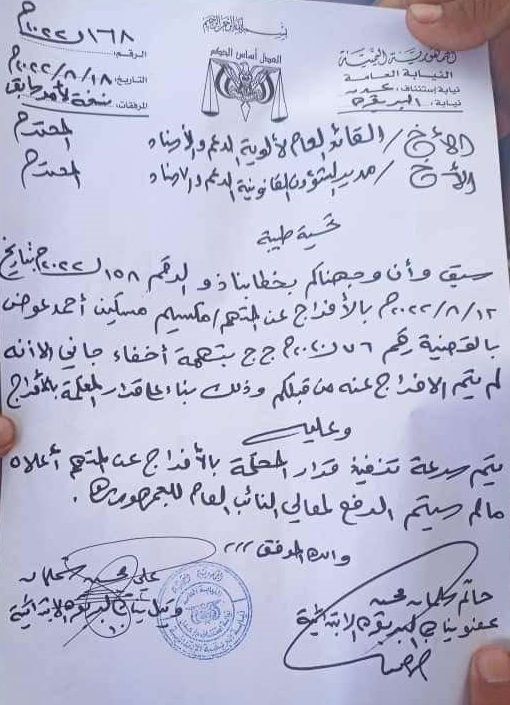 بسم الله الرحمن الرحيم
الجمهورية اليمنية
النيابة العامة
نيابة إستئناف عدن
نيابة البريقة
العدل أساس الحكم
الرقم: ١٦٨ / ٢٠٢٢م
التاريخ: ١٨/٨/٢٠٢٢م
المرفقات: نسخة لأمر سابق
الأخ/ القائد العام لألوية الدعم والإسناد المحترم
الأخ/ مدير الشؤون القانونية الدعم والإسناد المحترم
تحية طيبة
سبق وأن وجهناكم بخطابنا ذو الرقم ١٥٨ / ٢٠٢٢م بتاريخ
١٢/٨/٢٠٢٢م بالأفراج عن المتهم/ مكسيم مسكين أحمد عوض
بالقضية رقم ٧٦ / ٢٠٢٠م ج ج بتهمة أخفاء جاني الا أنه
لم يتم الافراج عنه من قبلكم وذلك بناء على قرار المحكمة بالأفراج
وعليه
يتم سرعة تنفيذ قرار المحكمة بالأفراج عن المتهم أعلاه
مالم سيتم الرفع لمعالي النائب العام للجمهورية.
والله الموفق ،،،
حاتم
عضو نيابة البريقة الإبتدائية
علي محمد
وكيل نيابة البريقة الإبتدائية